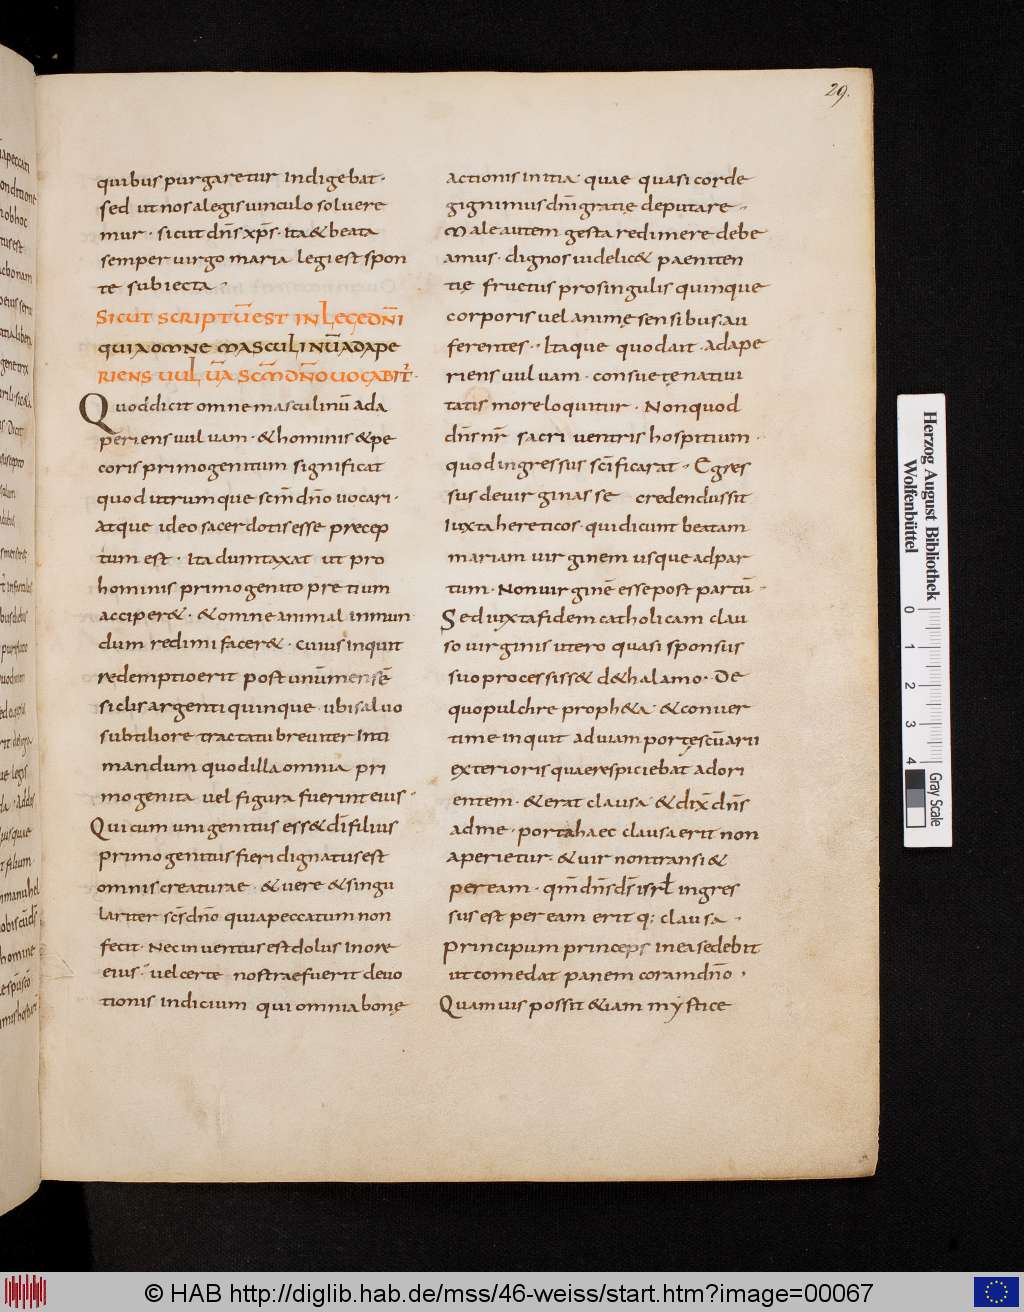 29.
quibus purgaretur indigebat·
sed ut nos a legis uinculo soluere
mur· sicut dn̄s xp̄s· ita & beata
semper uirgo maria legi est spon
te subiecta··
SICUT SCRIPTŪ EST IN LEGE DN̄I
QUIA OMNE MASCULINŪ ADAPE
RIENS UULUĀ SCM̄ DN̄O UOCABIT̄·
Quod dicit omne masculinū ada
periens uuluam· & hominis & pe
coris primogenitum significat
quod utrumque scm̄ dn̄o uocari·
atque ideo sacerdotis esse precep
tum est· ita dumtaxat ut pro
hominis primogenito pretium
acciper&· & omne animal inmun
dum redimi facer&· cuius inquit
redemptio erit post unūmensē
siclis argenti quinque· ubi saluo
subtiliore tractatu breuiter inti
mandum quod illa omnia pri
mogenita uel figura fuerint eius··
Qui cum unigenitus ess& dī filius
primogenitus fieri dignatus est
omnis creaturae· & uere & singu
lariter scs̄ dn̄o quia peccatum non
fecit· Nec inuentus est dolus in ore
eius·· uel certe nostrae fuerit deuo
tionis indicium qui omnia bonę
actionis initia quae quasi corde
gignimus dn̄i gratię deputare··
Male autem gesta redimere debe
amus· dignos uidelic& paeniten
tię fructus pro singulis quinque
corporis uel animę sensibus au
ferentes·· Itaque quod ait· adape
riens uuluam· consuetę natiui
tatis more loquitur· Non quod
dn̄s nr̄ sacri uentris hospitium·
quod ingressus scīficarat·· Egres
sus deuirginasse credendus sit
Iuxta hereticos· qui dicunt beatam
mariam uirginem usque ad par
tum· Non uirginē esse post partū·
Sed iuxta fidem catholicam clau
so uirginis utero quasi sponsus
suo processiss& de thalamo· De
quo pulchre proph&a· & conuer
time inquit ad uiam portę scūarii
exterioris quae respiciebat ad ori
entem· & erat clausa & dix̄ dn̄s
ad me· porta haec clausa erit non
aperietur· & uir non transi&
per eam· qm̄ dn̄s ds̄ isrl̄ ingres
sus est per eam erit q; clausa··
Principum princeps in ea sedebit
ut comedat panem coram dn̄o·
Quamuis possit &iam mystice
Herzog August Bibliothek
Wolfenbüttel
0 1 2 3 4
Gray Scale
© HAB http://diglib.hab.de/mss/46-weiss/start.htm?image=00067